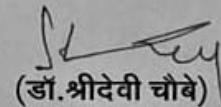 (डॉ.श्रीदेवी चौबे)